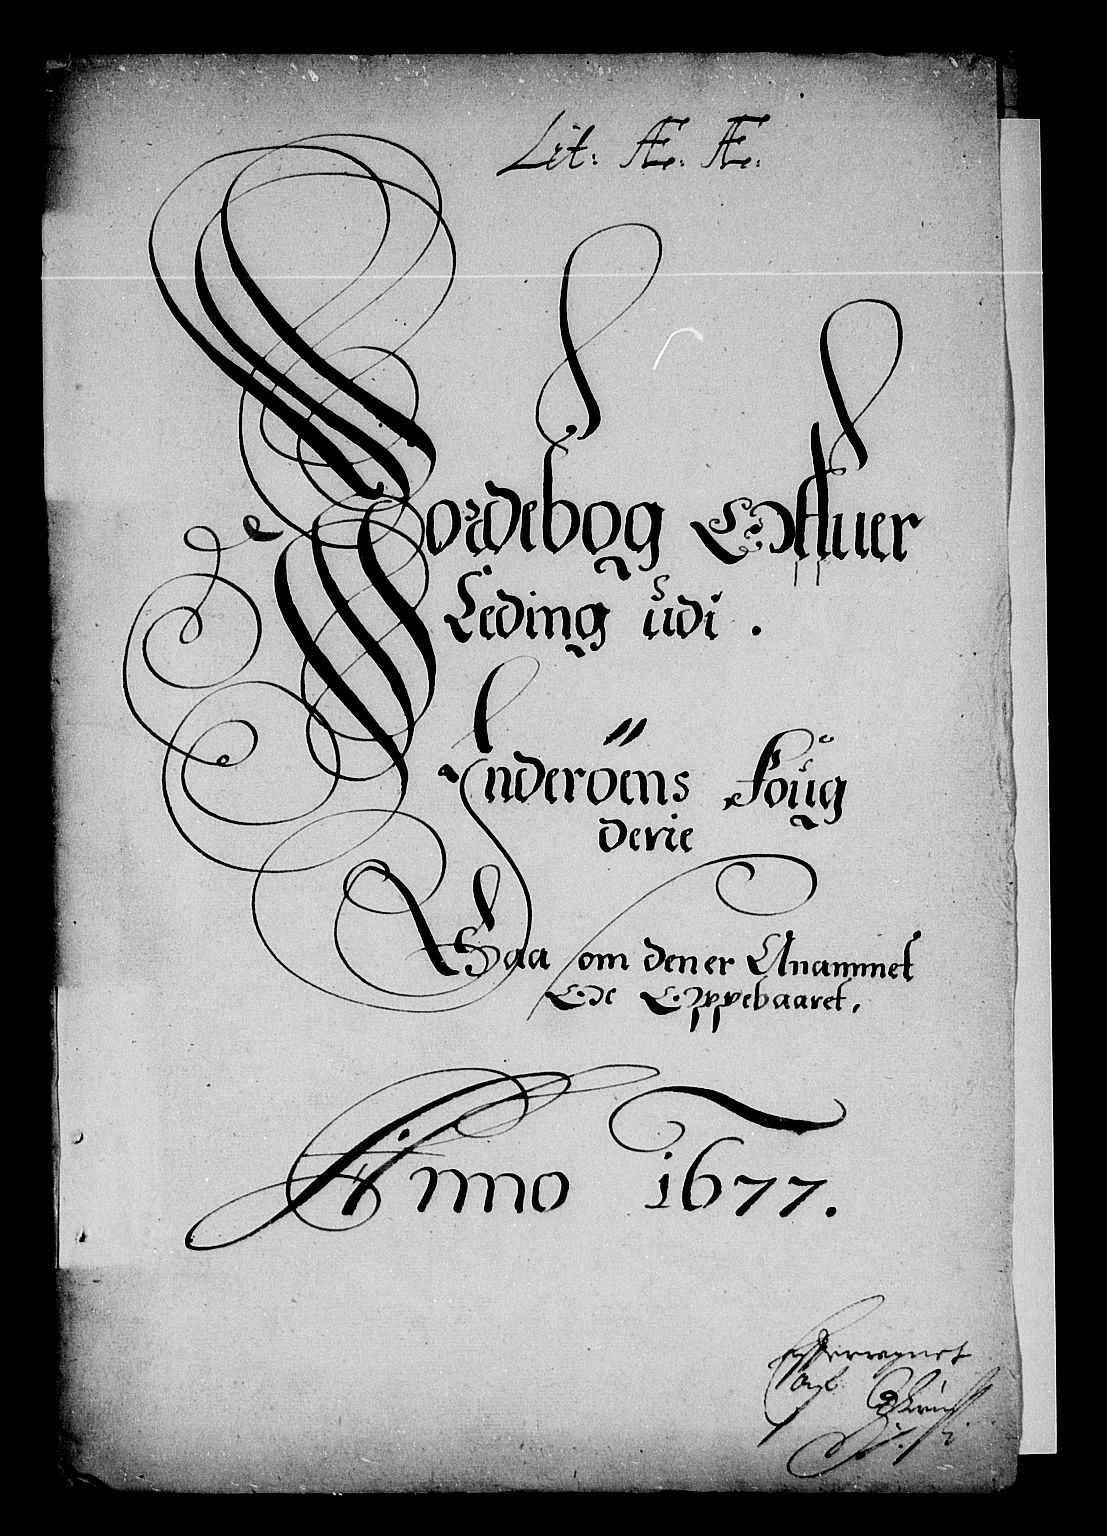 Lit: Æ. Æ.
Jordebog Offuer
Leding udi .
Ynderöens Foug
derie
Saa som den er Anammet
Oc Oppebaaret.
Anno 1677.
efferregnet